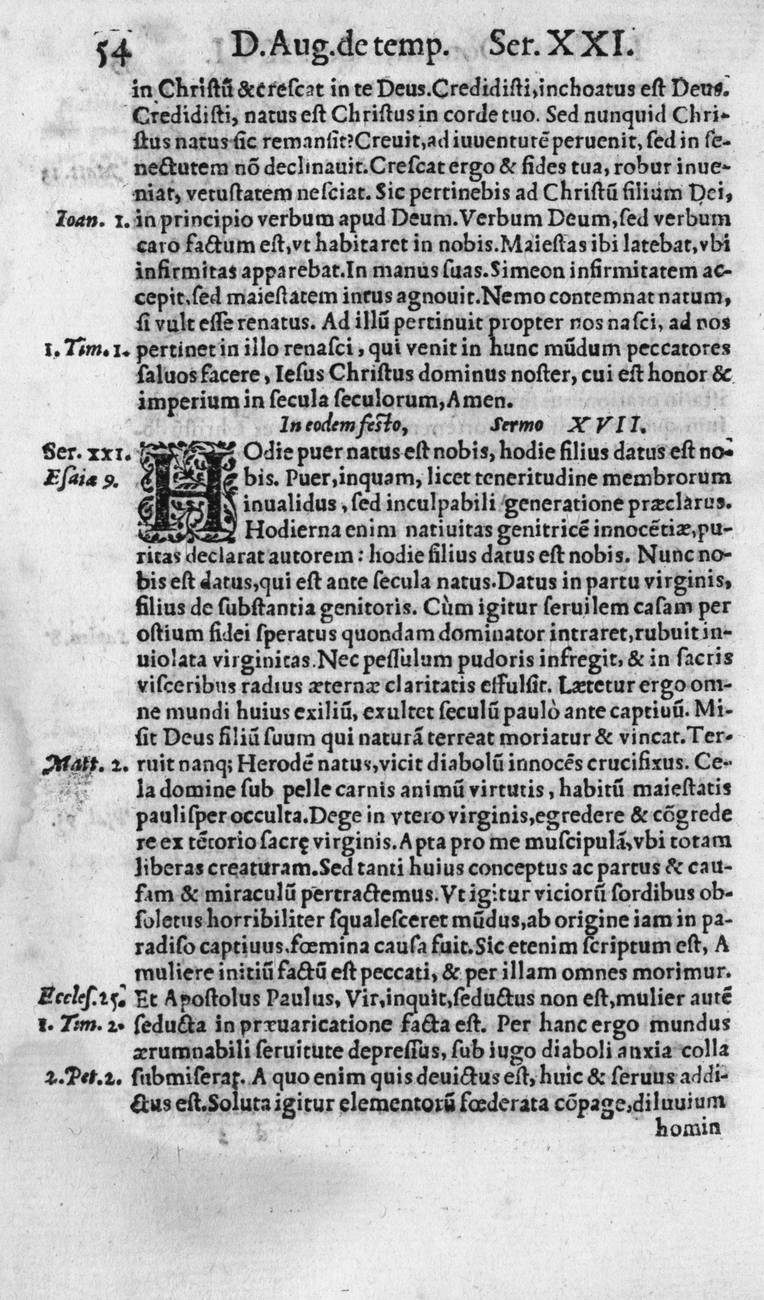 54 D. Aug. de temp. Ser. XXI.
in Christũ & crescat in te Deus. Credidisti, inchoatus est Deus.
Credidisti, natus est Christus in corde tuo. Sed nunquid Chri-
stus natus sic remansit? Creuit, ad iuuenturẽ peruenit, sed in se-
nectutem nõ declinauit. Crescat ergo & fides tua, robur inue-
niat, vetustatem nesciat. Sic pertinebis ad Christũ filium Dei,
Ioan. 1. in principio verbum apud Deum. Verbum Deum, sed verbum
caro factum est, vt habitaret in nobis. Maiestas ibi latebat, vbi
infirmitas apparebat. In manus suas. Simeon infirmitatem ac-
cepit, sed maiestatem intus agnouit. Nemo contemnat natum,
si vult esse renatus. Ad illũ pertinuit propter nos nasci, ad nos
1. Tim. 1. pertinet in illo renasci, qui venit in hunc mũdum peccatores
saluos facere, Iesus Christus dominus noster, cui est honor &
imperium in secula seculorum, Amen.
In eodem festo, Sermo XVII.
Ser. XXI. HOdie puer natus est nobis, hodie filius datus est no-
Esaiæ 9. bis. Puer, inquam, licet teneritudine membrorum
inualidus, sed inculpabili generatione præclarus.
Hodierna enim natiuitas genitricẽ innocẽtiæ, pu-
ritas declarat autorem: hodie filius datus est nobis. Nunc no-
bis est datus, qui est ante secula natus. Datus in partu virginis,
filius de substantia genitoris. Cùm igitur seruilem casam per
ostium fidei speratus quondam dominator intraret, rubuit in-
uiolata virginitas. Nec pessulum pudoris infregit, & in sacris
visceribus radius æternæ claritatis effulsit. Lætetur ergo om-
ne mundi huius exiliũ, exultet seculũ paulò ante captiuũ. Mi-
sit Deus filiũ suum qui naturã terreat moriatur & vincat. Ter-
Matt. 2. ruit nanq; Herodẽ natus, vicit diabolũ innocẽs crucifixus. Ce-
la domine sub pelle carnis animũ virtutis, habitũ maiestatis
paulisper occulta. Dege in vtero virginis, egredere & cõgrede
re ex tẽtorio sacrę virginis. Apta pro me muscipulã, vbi totam
liberas creaturam. Sed tanti huius conceptus ac partus & cau-
sam & miraculũ pertractemus. Vt igitur viciorũ sordibus ob-
soletus horribiliter squalesceret mũdus, ab origine iam in pa-
radiso captiuus. fœmina causa fuit. Sic etenim scriptum est, A
muliere initiũ factũ est peccati, & per illam omnes morimur.
Eccles. 25. Et Apostolus Paulus, Vir, inquit, seductus non est, mulier autẽ
1. Tim. 2. seducta in præuaricatione facta est. Per hanc ergo mundus
ærumnabili seruitute depressus, sub iugo diaboli anxia colla
2. Pet. 2. submiserat. A quo enim quis deuictus est, huic & seruus addi-
ctus est. Soluta igitur elementorũ fœderata cõpage, diluuium
homin